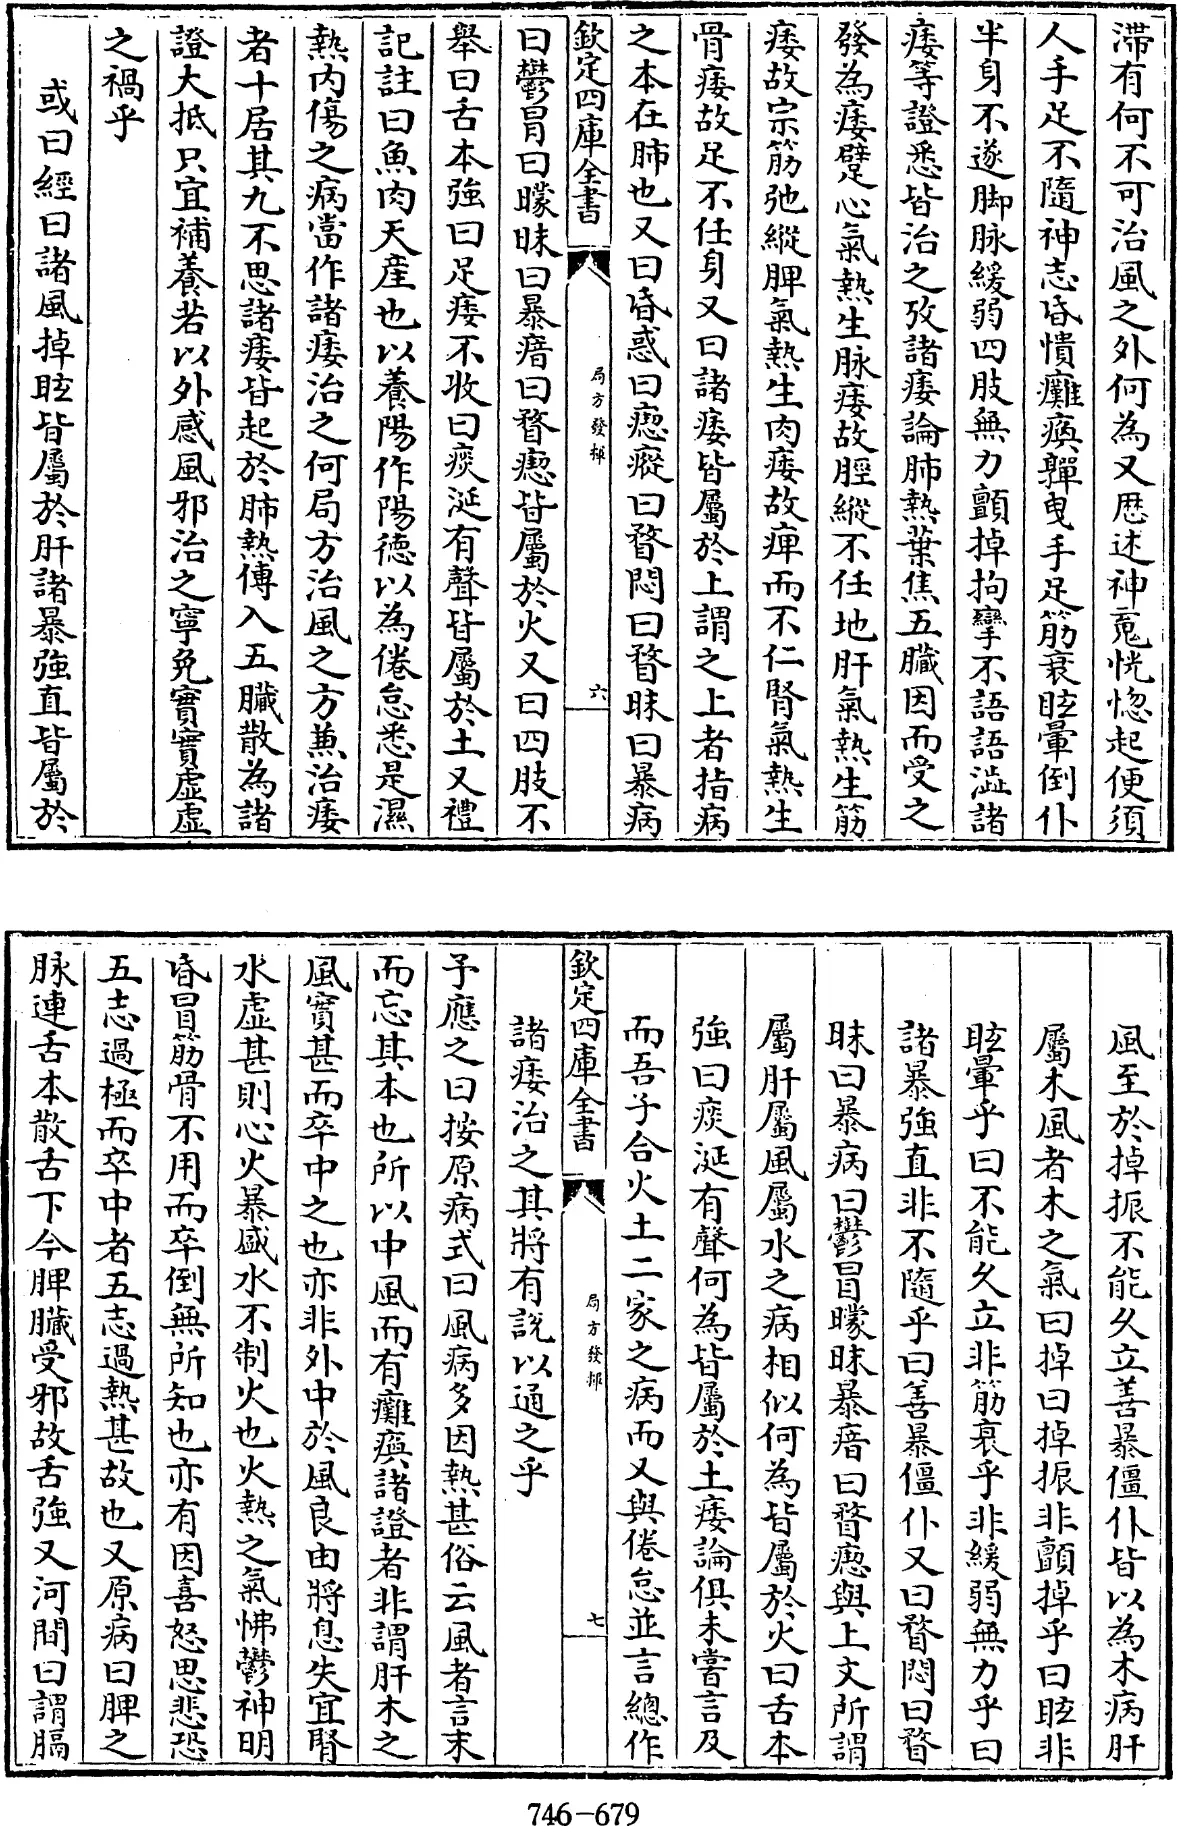 滯有何不可治風之外何為又歴述神䰟恍惚起便須
人手足不隨神志昏憒癱瘓嚲曳手足筋衰眩暈倒仆
半身不遂脚脉緩弱四肢無力顫掉拘攣不語語澁諸
痿等證悉皆治之攷諸痿論肺熱葉焦五臟因而受之
發為痿躄心氣熱生脉痿故脛縱不任地肝氣熱生筋
痿故宗筋弛縱脾氣熱生肉痿故痺而不仁腎氣熱生
骨痿故足不任身又曰諸痿皆屬於上謂之上者指病
之本在肺也又曰昏惑曰瘛瘲曰瞀悶曰瞀昧曰暴病
欽定四庫全書
局方發揮
六
曰鬱冒曰矇昧曰暴瘖曰瞀瘛皆屬於火又曰四肢不
舉曰舌本強曰足痿不收曰痰涎有聲皆屬於土又禮
記註曰魚肉天産也以養陽作陽德以為倦怠悉是濕
熱内傷之病當作諸痿治之何局方治風之方兼治痿
者十居其九不思諸痿皆起於肺熱傳入五臟散為諸
證大抵只宜補養若以外感風邪治之寧免實實虛虛
之禍乎
或曰經曰諸風掉眩皆屬於肝諸暴強直皆屬於
風至於掉振不能久立善暴僵仆皆以為木病肝
屬木風者木之氣曰掉曰掉振非顫掉乎曰眩非
眩暈乎曰不能久立非筋衰乎非緩弱無力乎曰
諸暴強直非不隨乎曰善暴僵仆又曰瞀悶曰瞀
昧曰暴病曰鬱冒矇昧暴瘖曰瞀瘛與上文所謂
屬肝屬風屬水之病相似何為皆屬於火曰舌本
強曰痰涎有聲何為皆屬於土痿論俱未嘗言及
而吾子合火土二家之病而又與倦怠並言總作
欽定四庫全書
局方發揮
七
諸痿治之其將有説以通之乎
予應之曰按原病式曰風病多因熱甚俗云風者言末
而忘其本也所以中風而有癱瘓諸證者非謂肝木之
風實甚而卒中之也亦非外中於風良由將息失宜腎
水虛甚則心火暴盛水不制火也火熱之氣怫鬱神明
昏冒筋骨不用而卒倒無所知也亦有因喜怒思悲恐
五志過極而卒中者五志過熱甚故也又原病曰脾之
脉連舌本散舌下今脾臟受邪故舌強又河間曰謂膈
746-679